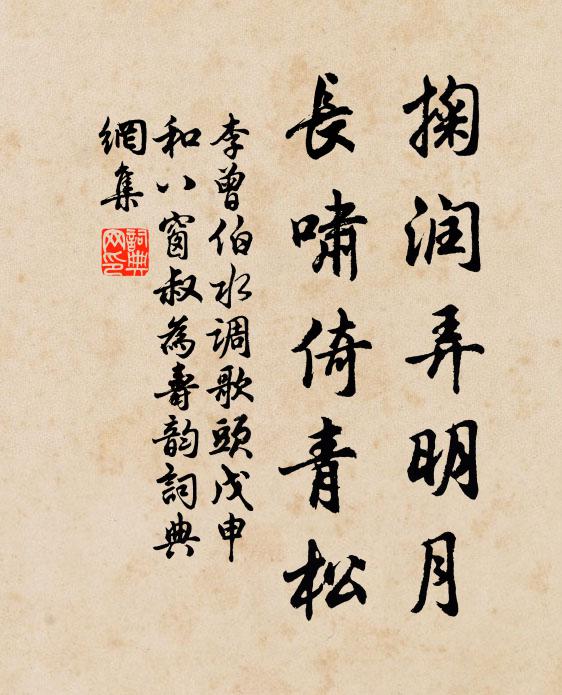 掬润弄明月
長嘯倚青松
李曾伯水调歌頭戊申
和八窗叔為壽韵詞典
網集
詞典网印